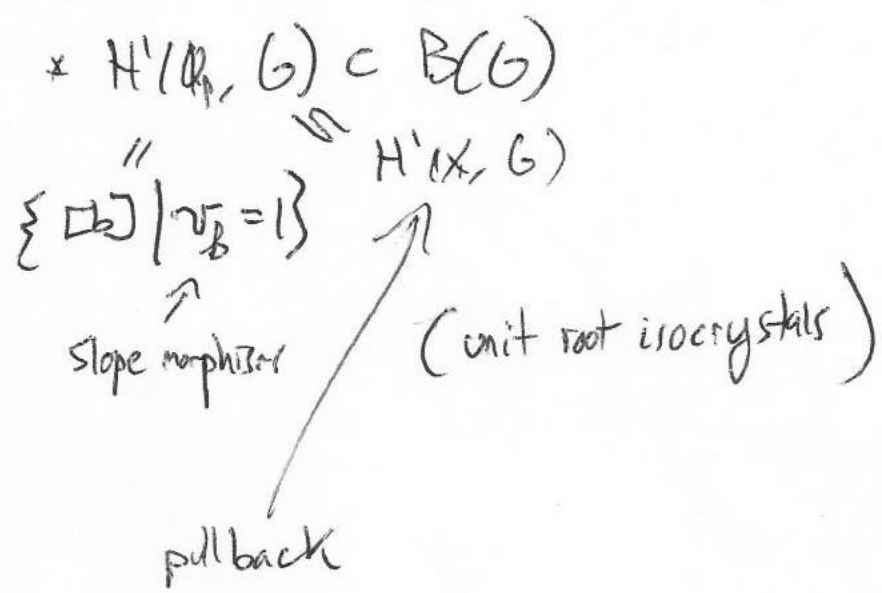 * H¹(ℚₚ, G) ⊂ B(G)
= ⊂ H¹(X, G)
{[b] | ν_b = 1}
slope morphism (unit root isocrystals)
pullback